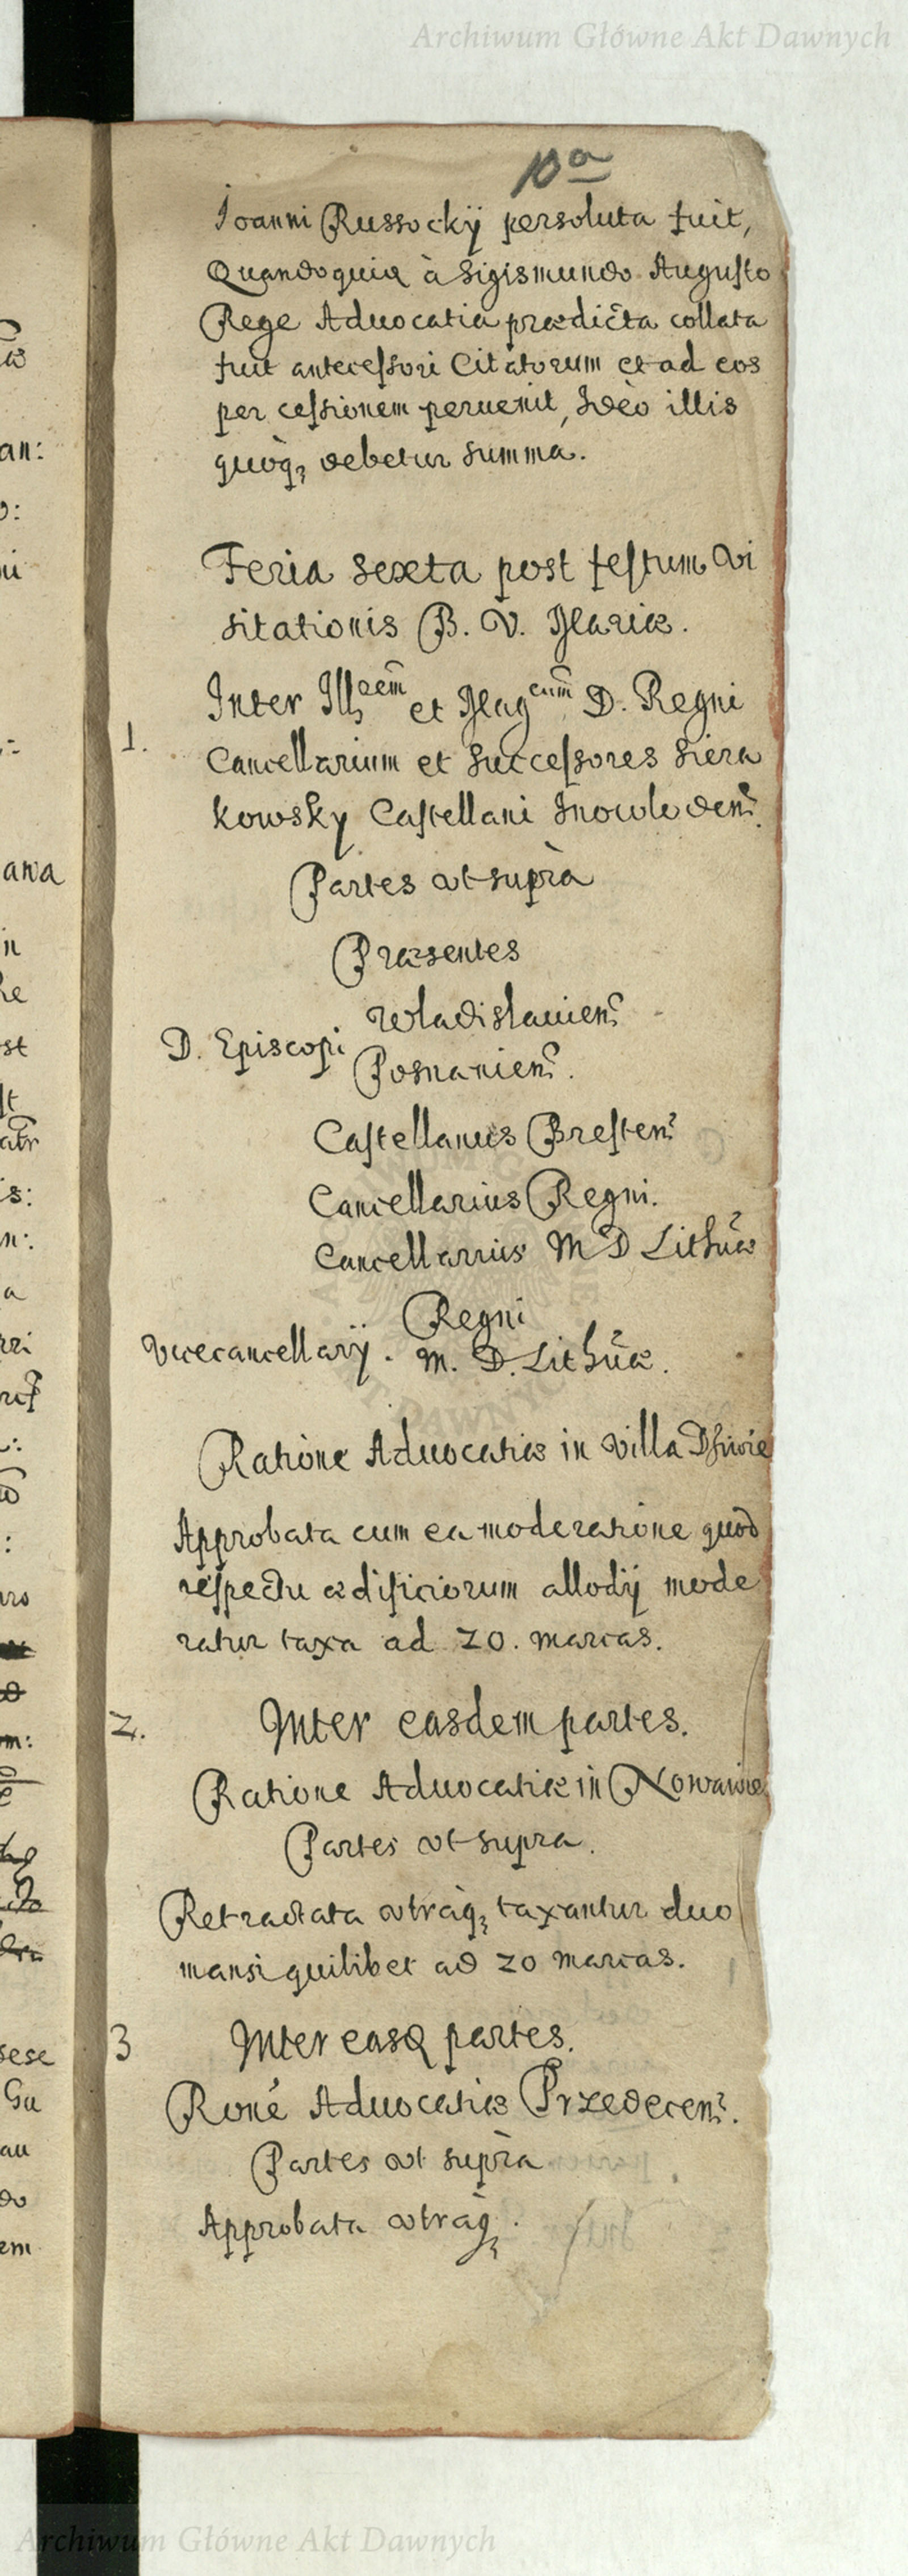 Archiwum Główne Akt Dawnych
10a
Joanni Russockÿ persoluta fuit,
Quandoquia à Sigismundo Augusto
Rege Aduocatia prædicta collata
fuit antecessori Citatorum et ad eos
per cessionem peruenit, Ideò illis
quoq; debetur summa.
Feria sexta post festum Vi
sitationis B. V. Mariæ.
Inter Ill et Mag D. Regni
1.
Cancellarium et successores Siera
kowsky Castellani Inowloden.
Partes vt suprà
Præsentes
Wladislauien.
D. Episcopi
Posnanien.
Castellanus Bresten.
Cancellarius Regni.
Cancellarius M D Lithuæ
Regni
Vicecancellarÿ. M. D. Lithuæ.
Ratione Aduocatiæ in villa
Approbata cum ea moderatione quod
respectu ædificiorum allodÿ mode
ratur taxa ad 20. marcas.
2. Inter easdem partes.
Ratione Aduocatiæ in Nowawie
Partes vt supra.
Retractata vtraq; taxantur duo
mansi quilibet ad 20 marcas.
3 Inter easq partes.
Roné Aduocatiæ Przedecen.
Partes vt suprà
Approbata vtraq;.
Archiwum Główne Akt Dawnych